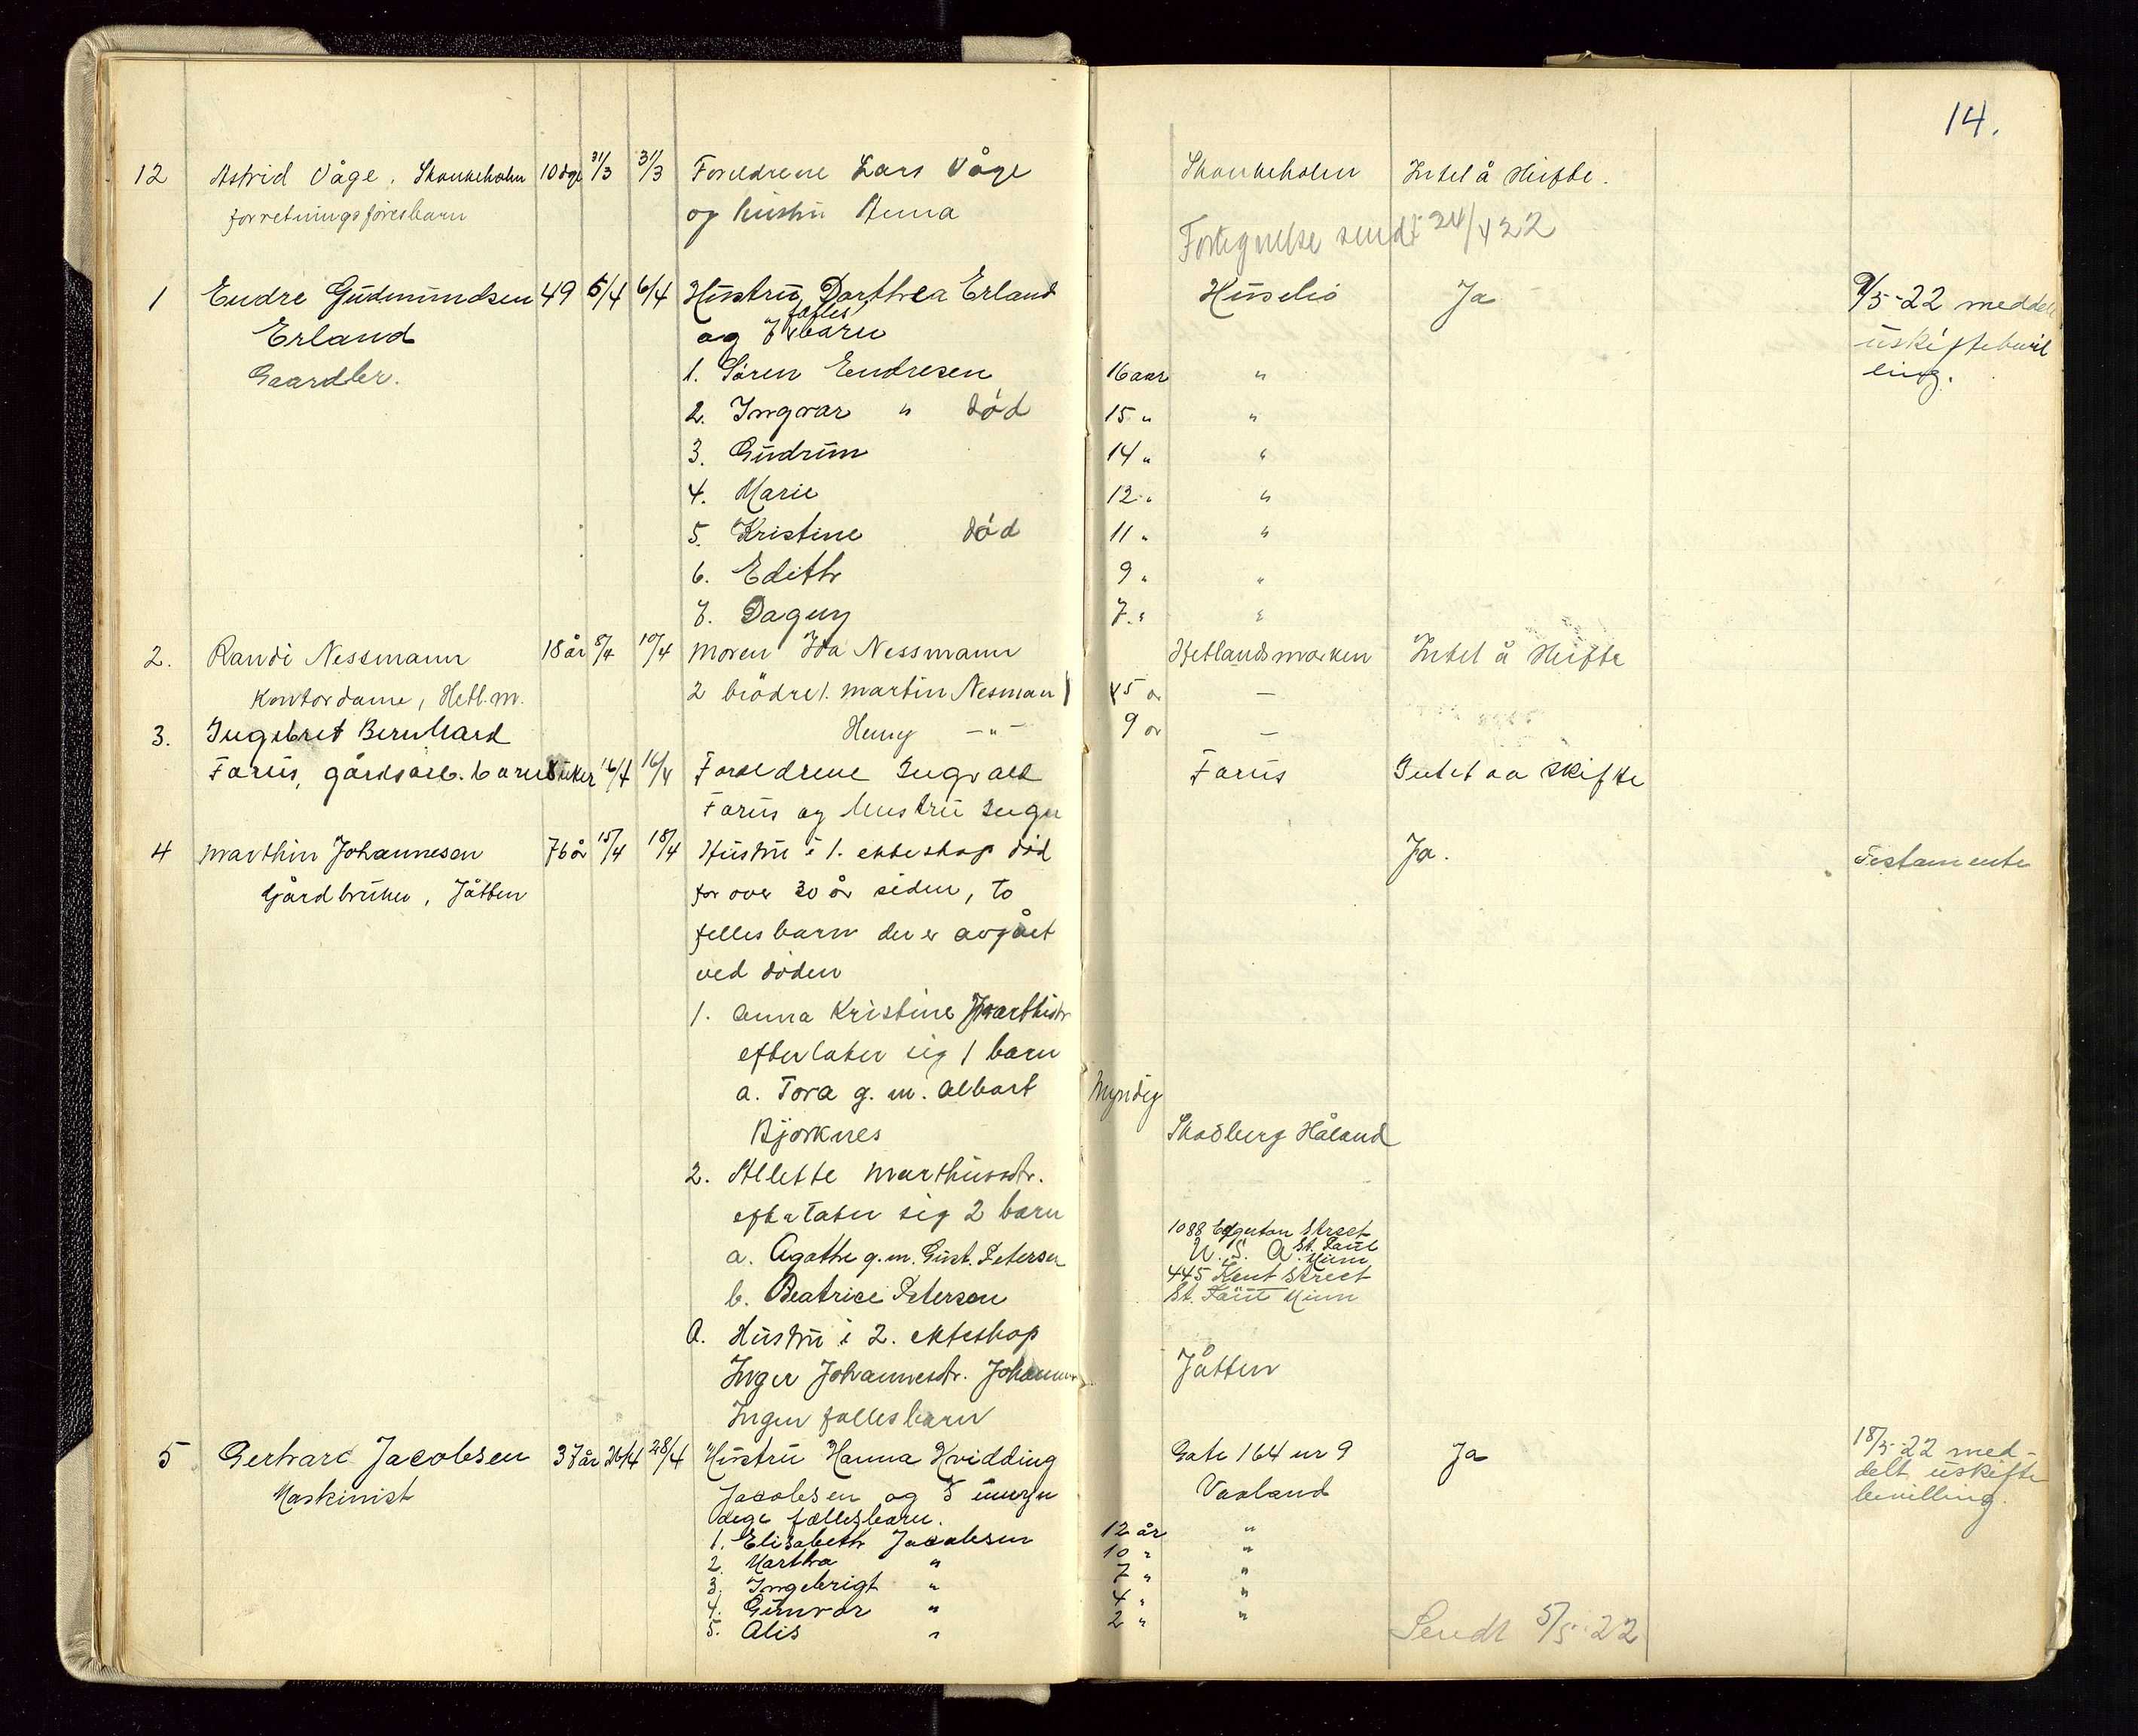 14.
12 Astrid Våge, Skankeholm 10 dge 31/3 31/3 Foreldrene Lars Våge Skankeholm Intet å skifte.
forretningsføresbarn og hustru Anna
Fortegnelse sendt 24/4 22
1 Endre Gudmundsen 49 5/4 6/4 Hustru Dorthea Erland Husebø Ja 9/5-22 meddelt
Erland og 7 fælles barn uskiftebevil
Gaardbr. 1. Søren Endresen 16 aar " ling.
2. Ingvar " død 15 " "
3. Gudrun 14 " "
4. Marie 12 " "
5. Kristine død 11 " "
6. Edith 9 " "
7. Dagny 7 " "
2. Randi Nessmann 18 år 8/4 10/4 Moren Ida Nessmann Hetlandsmarken Intet å skifte
Kontordame, Hetl.m. 2 brødre 1. Martin Nesman 15 år —
3. Ingebret Bernhard Henry —"— 9 år —
Forus, gårdsarb. barn uker 16/4 16/4 Foreldrene Ingvald Forus Intet aa skifte
Forus og Hustru Inga
4 Marthin Johannesen 76 år 15/4 18/4 Hustru i 1. ekteskap død Ja. Testamente
Gårdbruker, Jåtten for over 30 år siden, to
felles barn der er avgået
ved døden
1. Anna Kristine Marthistr
efterlater sig 1 barn
a. Tora g. m. Albart Myndig
Bjorknes Skadberg Håland
2. Allette Marthinsdtr.
efterlater sig 2 barn
a. Agathe g. m. Gust. Peterson 1088 Edgerton Street
U. S. A. St. Paul Minn
b. Beatrice Peterson 445 Kent Street
St. Paul Minn
A. Hustru i 2. ekteskap
Inger Johannesdtr. Johannes Jåtten
Ingen fællesbarn
5 Gerhard Jacobsen 37 år 26/4 28/4 Hustru Hanna Kvidding Gate 164 nr 9 Ja 18/5-22 med-
Maskinist Jacobsen og 5 umyn Vaaland delt uskifte
dige fællesbarn. bevilling.
1. Elisabeth Jacobsen 12 år "
2. Martha " 10 " "
3. Ingebrigt " 7 " "
4. Gunvor " 4 " "
5. Alis " 2 " "
Sendt 5/5-22